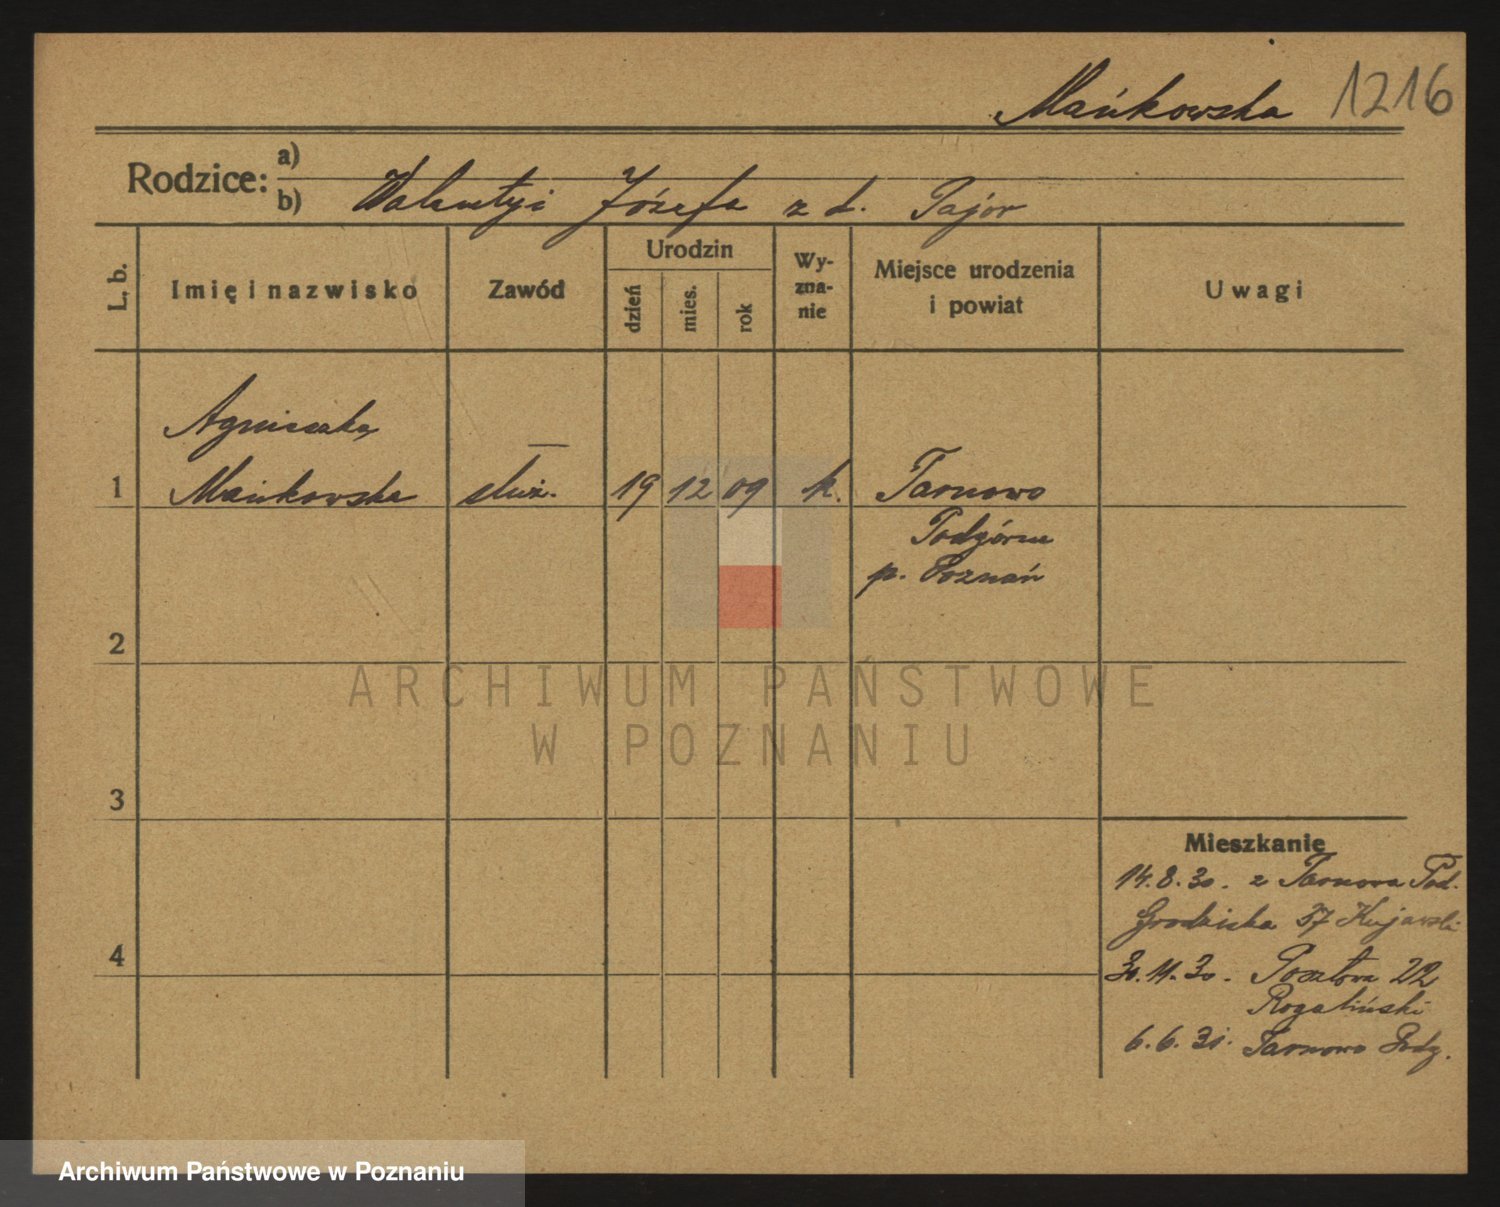 Mańkowska 1216
Rodzice: a)
b) Walenty i Józefa z d. Pajor
L. b.
Imię i nazwisko
Zawód
Urodzin
dzień
mies.
rok
Wy-
zna-
nie
Miejsce urodzenia
i powiat
Uwagi
Agnieszka
1 Mańkowska służ. 19 12 09 k. Tarnowo
Podgórne
p. Poznań
2
3
4
Mieszkanie
14.8.30. z Tarnowa Pod.
Grodziska 57 Kujawski
30.11.30. Pocztowa 22
Rogaliński
6.6.31. Tarnowo Podg.
ARCHIWUM PAŃSTWOWE
W POZNANIU
Archiwum Państwowe w Poznaniu